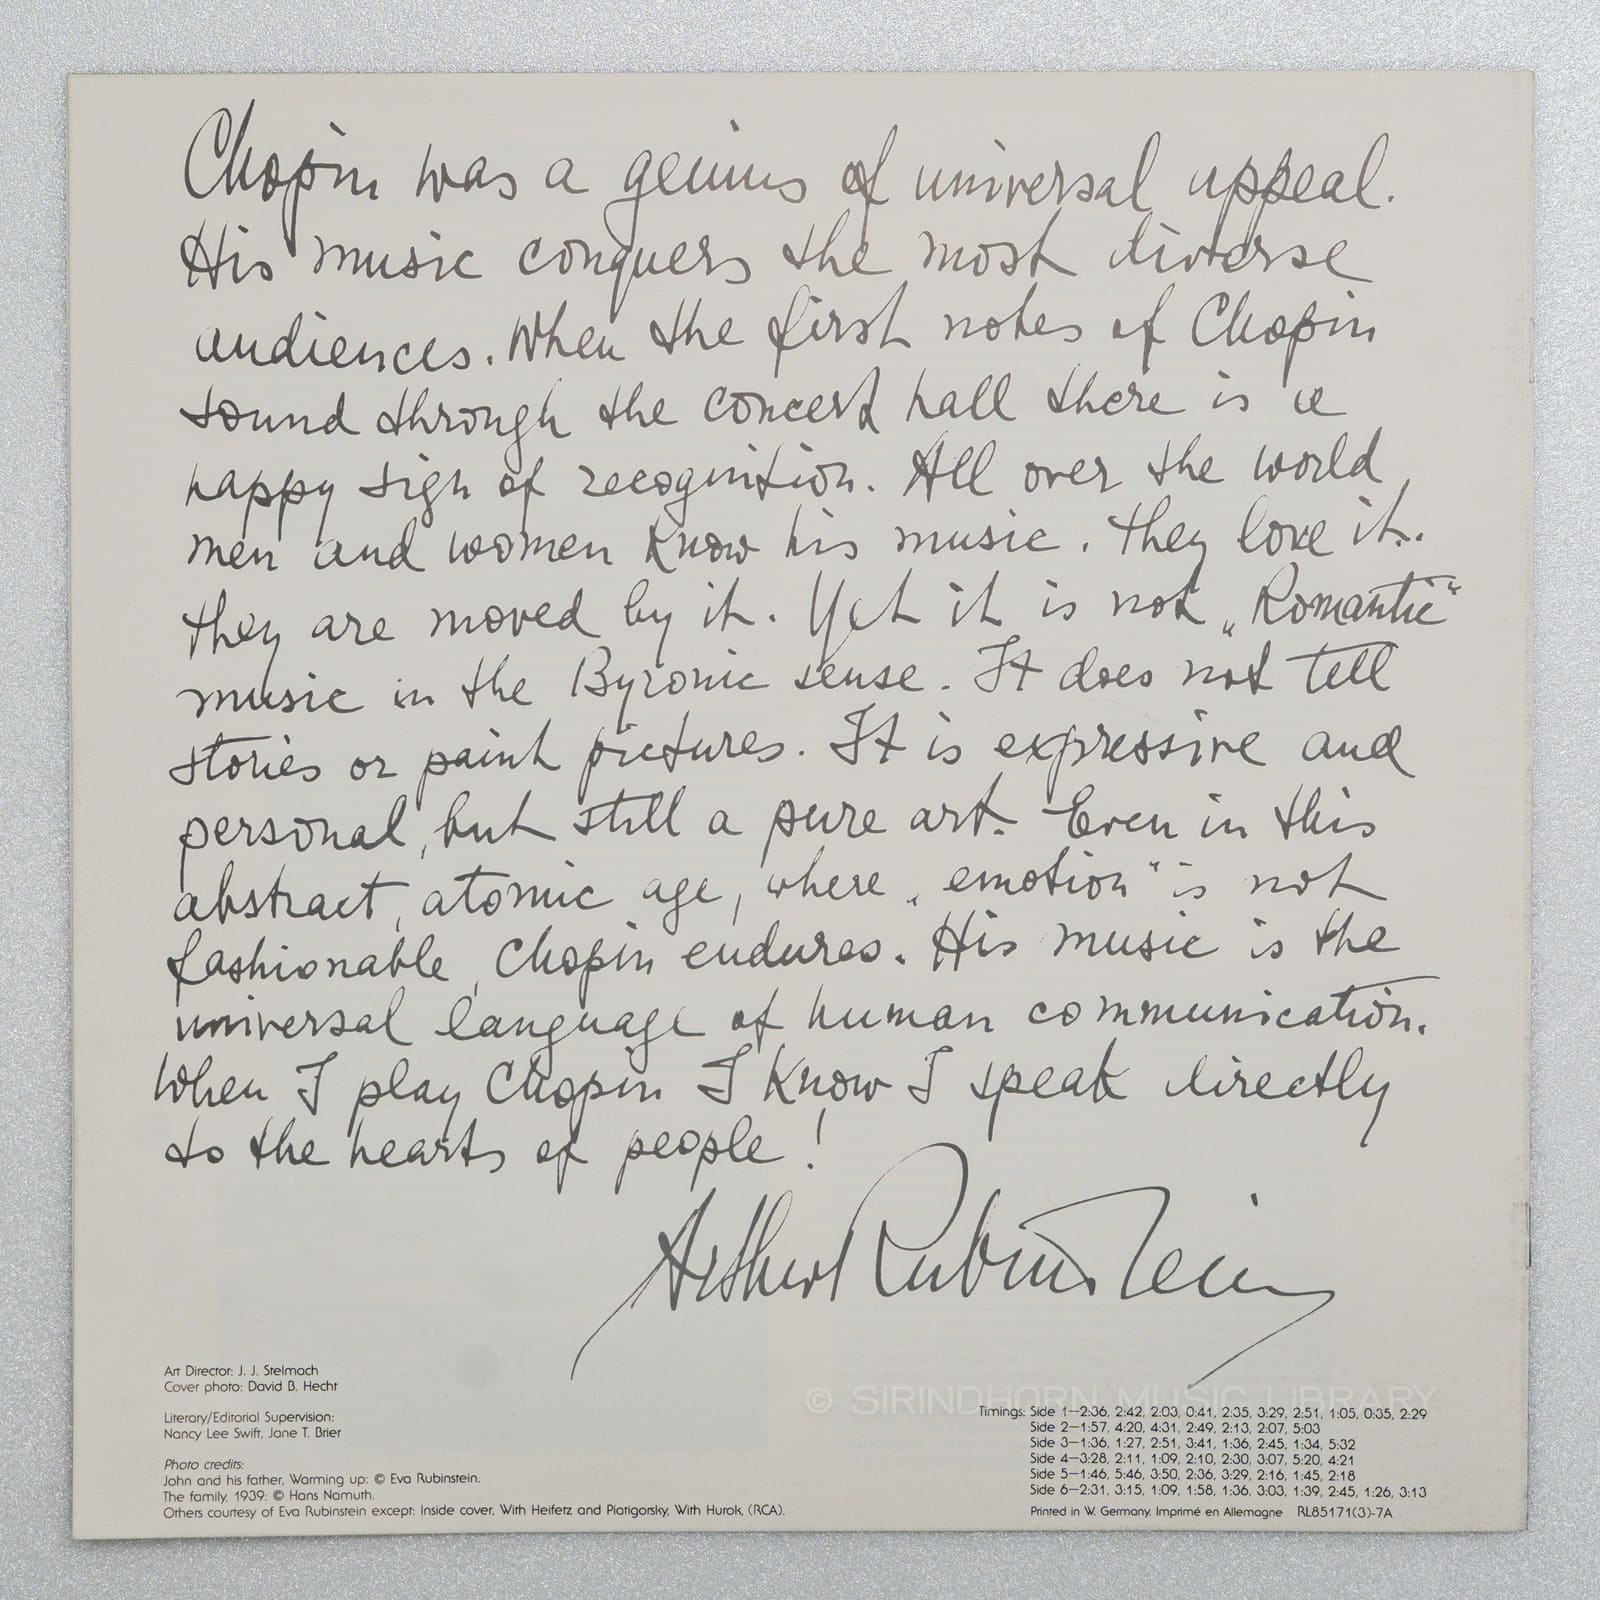 Chopin was a genius of universal appeal.
His music conquers the most diverse
audiences. When the first notes of Chopin
sound through the concert hall there is a
happy sigh of recognition. All over the world
men and women know his music. They love it.
They are moved by it. Yet it is not „Romantic“
music in the Byronic sense. It does not tell
stories or paint pictures. It is expressive and
personal, but still a pure art. Even in this
abstract, atomic age, where „emotion“ is not
fashionable, Chopin endures. His music is the
universal language of human communication.
When I play Chopin I know I speak directly
to the hearts of people!
Arthur Rubinstein
Art Director: J. J. Stelmach
Cover photo: David B. Hecht
Literary/Editorial Supervision:
Nancy Lee Swift, Jane T. Brier
Photo credits:
John and his father, Warming up: © Eva Rubinstein.
The family, 1939: © Hans Namuth.
Others courtesy of Eva Rubinstein except: Inside cover, With Heifetz and Piatigorsky, With Hurok, (RCA).
© SIRINDHORN MUSIC LIBRARY
Timings: Side 1—2:36, 2:42, 2:03, 0:41, 2:35, 3:29, 2:51, 1:05, 0:35, 2:29
Side 2—1:57, 4:20, 4:31, 2:49, 2:13, 2:07, 5:03
Side 3—1:36, 1:27, 2:51, 3:41, 1:36, 2:45, 1:34, 5:32
Side 4—3:28, 2:11, 1:09, 2:10, 2:30, 3:07, 5:20, 4:21
Side 5—1:46, 5:46, 3:50, 2:36, 3:29, 2:16, 1:45, 2:18
Side 6—2:31, 3:15, 1:09, 1:58, 1:36, 3:03, 1:39, 2:45, 1:26, 3:13
Printed in W. Germany. Imprimé en Allemagne RL85171(3)-7A